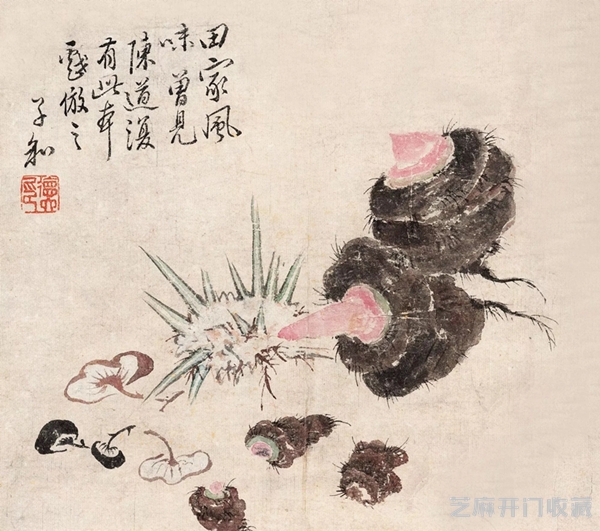 田家風
味曾見
陳道復
有此本
戲倣之
子和
芝麻开门收藏